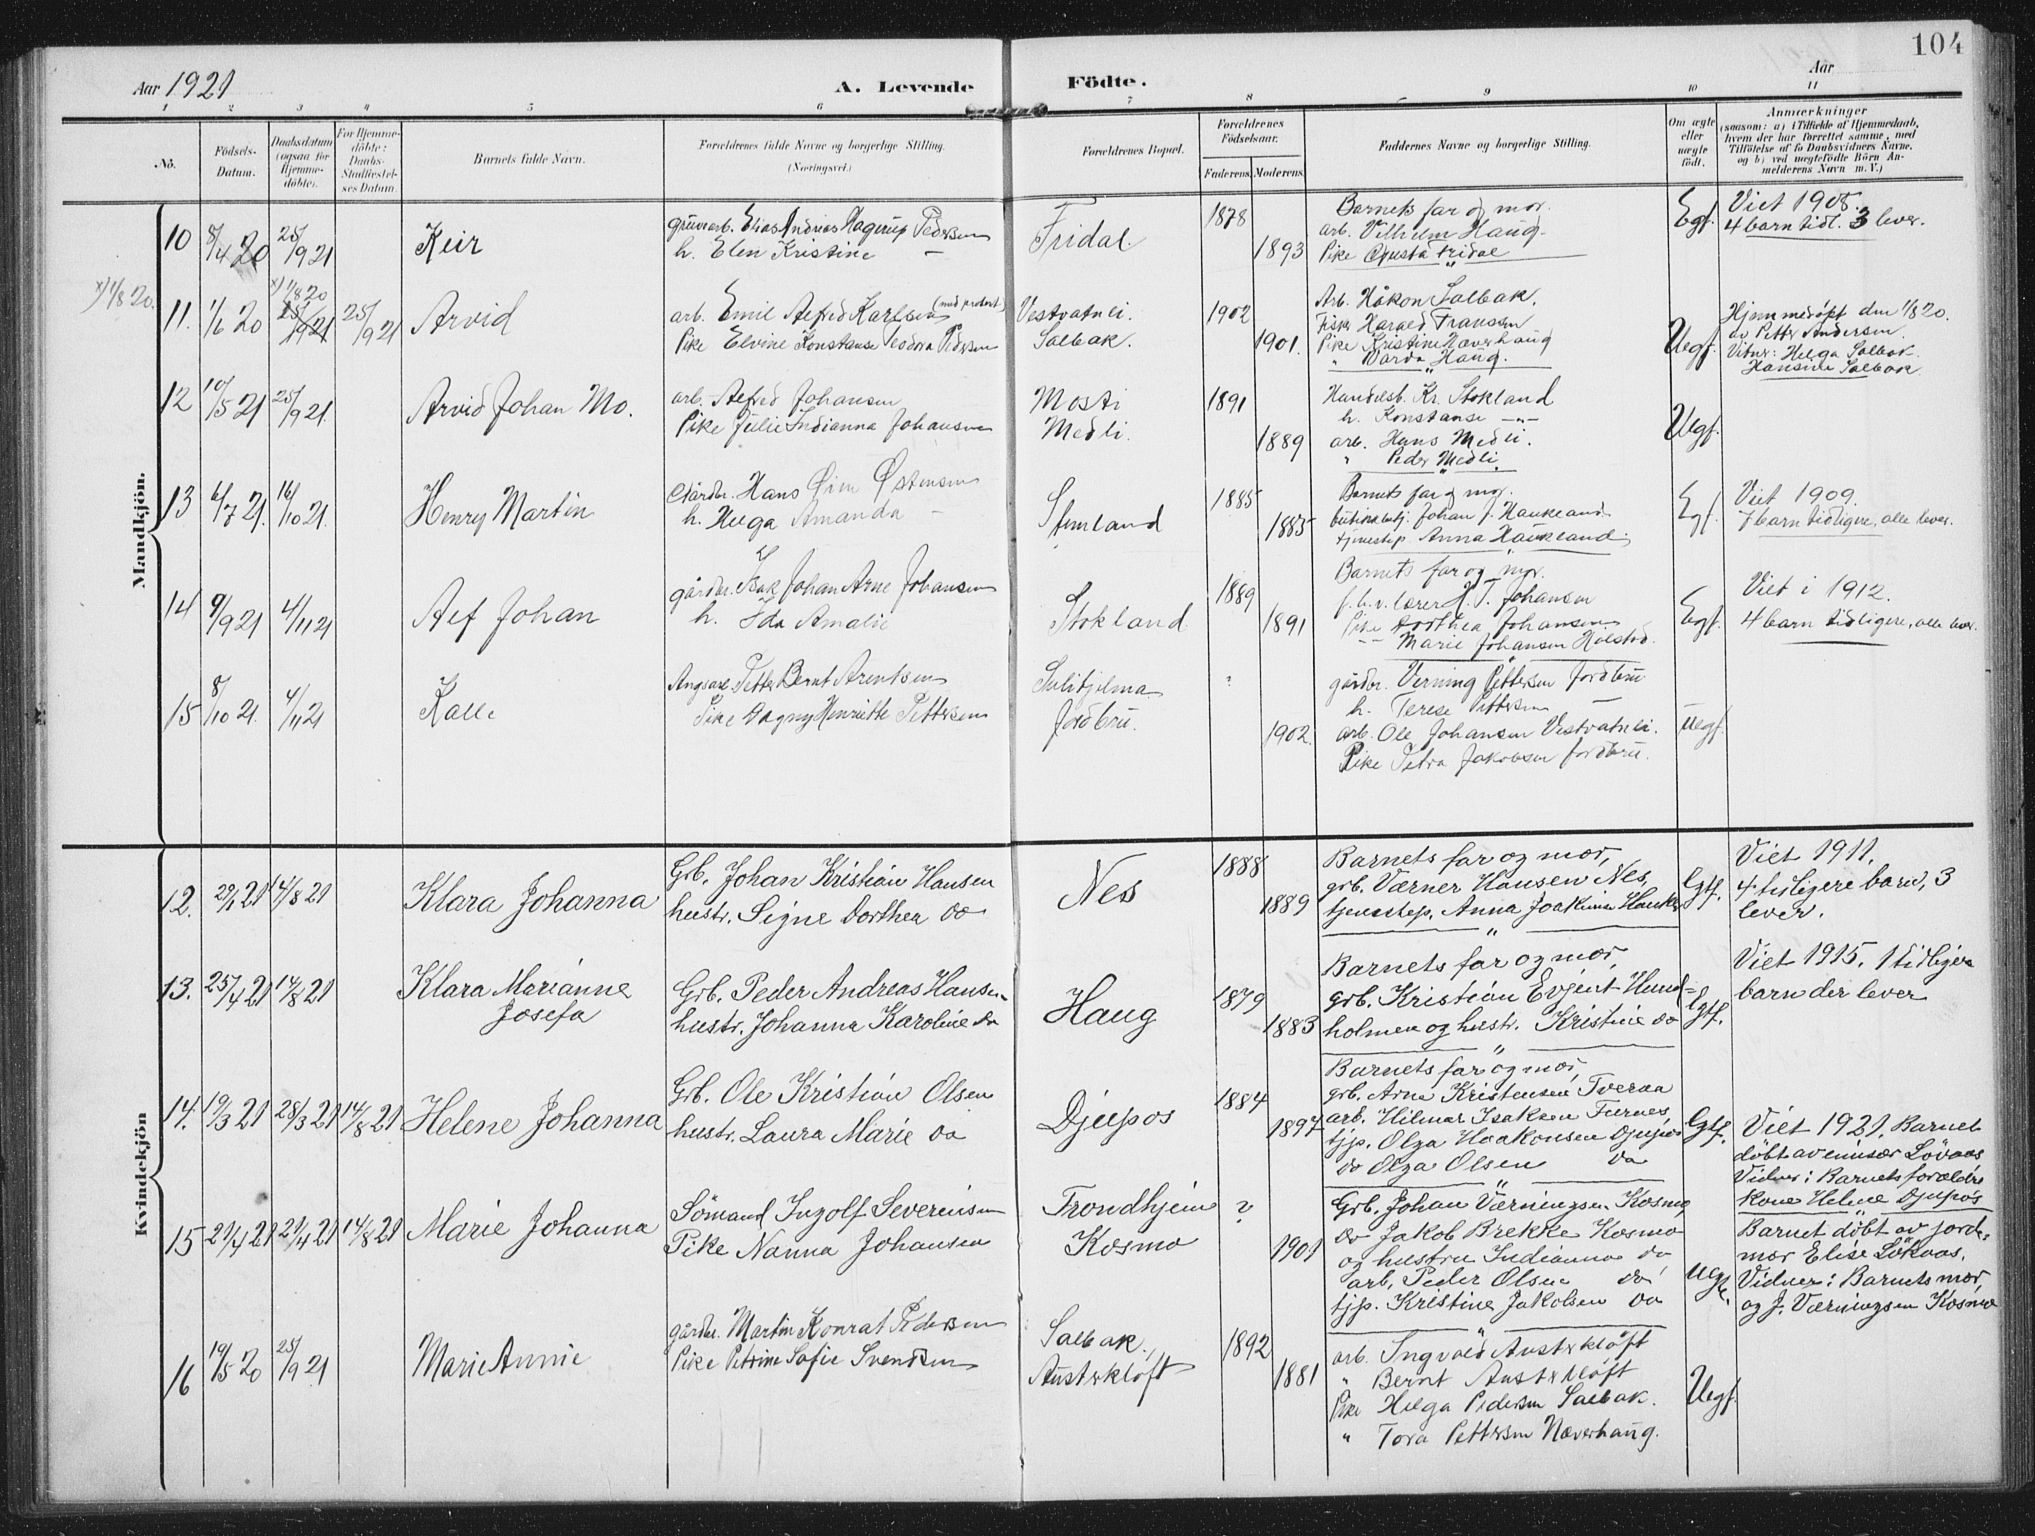 104
Aar 1921
A. Levende Födte.
Aar
1 2 3 4 5 6 7 8 9 10 11
No.
Födsels-Datum.
Daabsdatum (ogsaa for Hjemme-döbte).
For Hjemme-döbte: Daabs-Stadfæstel-ses Datum.
Barnets fulde Navn.
Forældrenes fulde Navne og borgerlige Stilling. (Næringsvei.)
Forældrenes Bopæl.
Forældrenes Födselsaar.
Faderens. Moderens.
Faddernes Navne og borgerlige Stilling.
Om ægte eller uægte födt.
Anmærkninger
(saasom: a) i Tilfælde af Hjemmedaab,
hvem der har forrettet samme, med
Tilföielse af to Daabsvidners Navne,
og b) ved uegtefödte Börn An-
melderens Navn m. V.)
Mandkjön.
10 8/4 20 25/9 21 Keir
gruvearb. Elias Andreas Hagerup Pedersen
h. Elen Kristine —
Fridal. 1878 1893
Barnets far og mor.
arb. Vilhelm Haug.
Pike Gusta Fridal
Egf.
Viet 1908.
4 barn tidl. 3 lever.
x) 1/8 20.
11. 1/6 20 x) 1/8 20 25/9 21 25/9 21 Arvid
arb. Emil Alfred Karlsen
Pike Elvine Konstanse Teodora Pedersen
Vestvatnli.
Salbak. 1902 1901.
Arb. Håkon Salbak.
Fisk. Harald Franssen
Pike Kristine Næverhaug
" Warda Haug.
Uegf.
Hjemmedøpt den 1/8 20.
av Petter Andersen.
Vitner: Helga Salbak.
Hansine Salbak
12 10/5 21 25/9 21. Arvid Johan Mo.
arb. Alfred Johansen
Pike Julie Indianna Johansen
Mosti
Medli. 1891 1889
Handelsb. Kr. Stokland
h. Konstanse —"—
arb. Hans Medli.
" Peder Medli.
Uegf.
13 6/7 21. 16/10 21. Henry Martin
Gårdbr. Hans Øim Østensen
h. Helga Amanda —
Stemland 1885 1885
Barnets far og mor.
butikkbetj. Johan J. Haukland
tjenestep. Anna Haukland.
Egf.
Viet 1909.
7 barn tidligere, alle lever.
14 9/9 21 4/11 21 Alf Johan
gårdbr. Isak Johan Arne Johansen
h. Ida Amalie
Stokland 1889 1891
Barnets far og mor.
f.h.v. lærer H. T. Johansen
Pike Dorthea Johansen.
— Marie Johansen Holstad.
Egf.
Viet i 1912.
4 barn tidligere, alle lever.
15 8/10 21. 4/11 21 Kalle
Petter Bernt Arentsen
Pike Dagny Henriette Pettersen
Sulitjelma
Jordbru. ? 1902.
gårdbr. Verning Pettersen Jordbru
h. Terese Pettersen —
arb. Ole Johansen Vestvatnli.
Pike Petra Jakobsen Jordbru.
Uegf.
Kvindekjön
12. 29/1 21 14/8 21 Klara Johanna
Grb. Johan Kristian Hansen
hustr. Signe Dorthea do
Nes 1888 1889
Barnets far og mor,
grb. Værner Hansen Nes,
tjenestep. Anna Joakimsen
Egtf.
Viet 1911.
4 tidligere barn, 3
lever.
13. 25/4 21 14/8 21 Klara Marianne
Josefa
Grb. Peder Andreas Hansen
hustr. Johanna Karoline do
Haug 1879 1883
Barnets far og mor,
grb. Kristian Evjent Hund-
holmen og hustr. Kristine do
Egtf.
Viet 1915. 1 tidligere
barn der lever
14. 19/3 21 28/3 21 14/8 21 Helene Johanna
Grb. Ole Kristian Olsen
hustr. Laura Marie do
Djupos 1884 1897
Barnets far og mor,
grb. Arne Kristensen Tveraa
arb. Hilmar Isaksen Furnes,
tjp. Olga Haakonsen Djupos
do Olga Olsen do
Egtf.
Viet 1921. Barnet
döbt av emisær Lövaas
Vidner: Barnets forældre
kone Helene Djupos
15 21/4 21 29/4 21 14/8 21 Marie Johanna
Sömand Ingolf Severinsen
Pike Nanna Johansen
Trondhjem
Kosmo ? 1901
Grb. Johan Værningsen Kosmo
do Jakob Brekke Kosmo
og hustru Indianna do
arb. Peder Olsen do
tjp. Kristine Jakobsen do
Uegf.
Barnet döbt av jord-
mor Elise Lökaas,
Vidner: Barnets mor,
og J. Værningsen Kosmo
16 19/5 20 25/9 21 Marie Annie
gårdbr. Martin Konrat Pedersen
Pike Petrine Sofie Svendsen
Salbak.
Austerkløft 1892 1881
arb. Ingvald Austerkløft
" Bernt Austerkløft
Pike Helga Pedersen Salbak.
" Tora Pettersen Næverhaug.
Uegf.